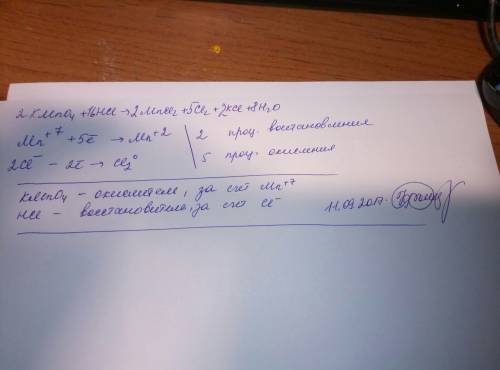 2 KMnO4 + 16HCl → 2MnCl2 + 5Cl2 + 2KCl + 8H2O
Mn+7 + 5ē → Mn+2 | 2 проц. восстановления
2Cl- - 2ē → Cl2° | 5 проц. окисления
KMnO4 - окислитель, за счёт Mn+7
HCl - восстановитель, за счёт Cl-
11.09.2017.